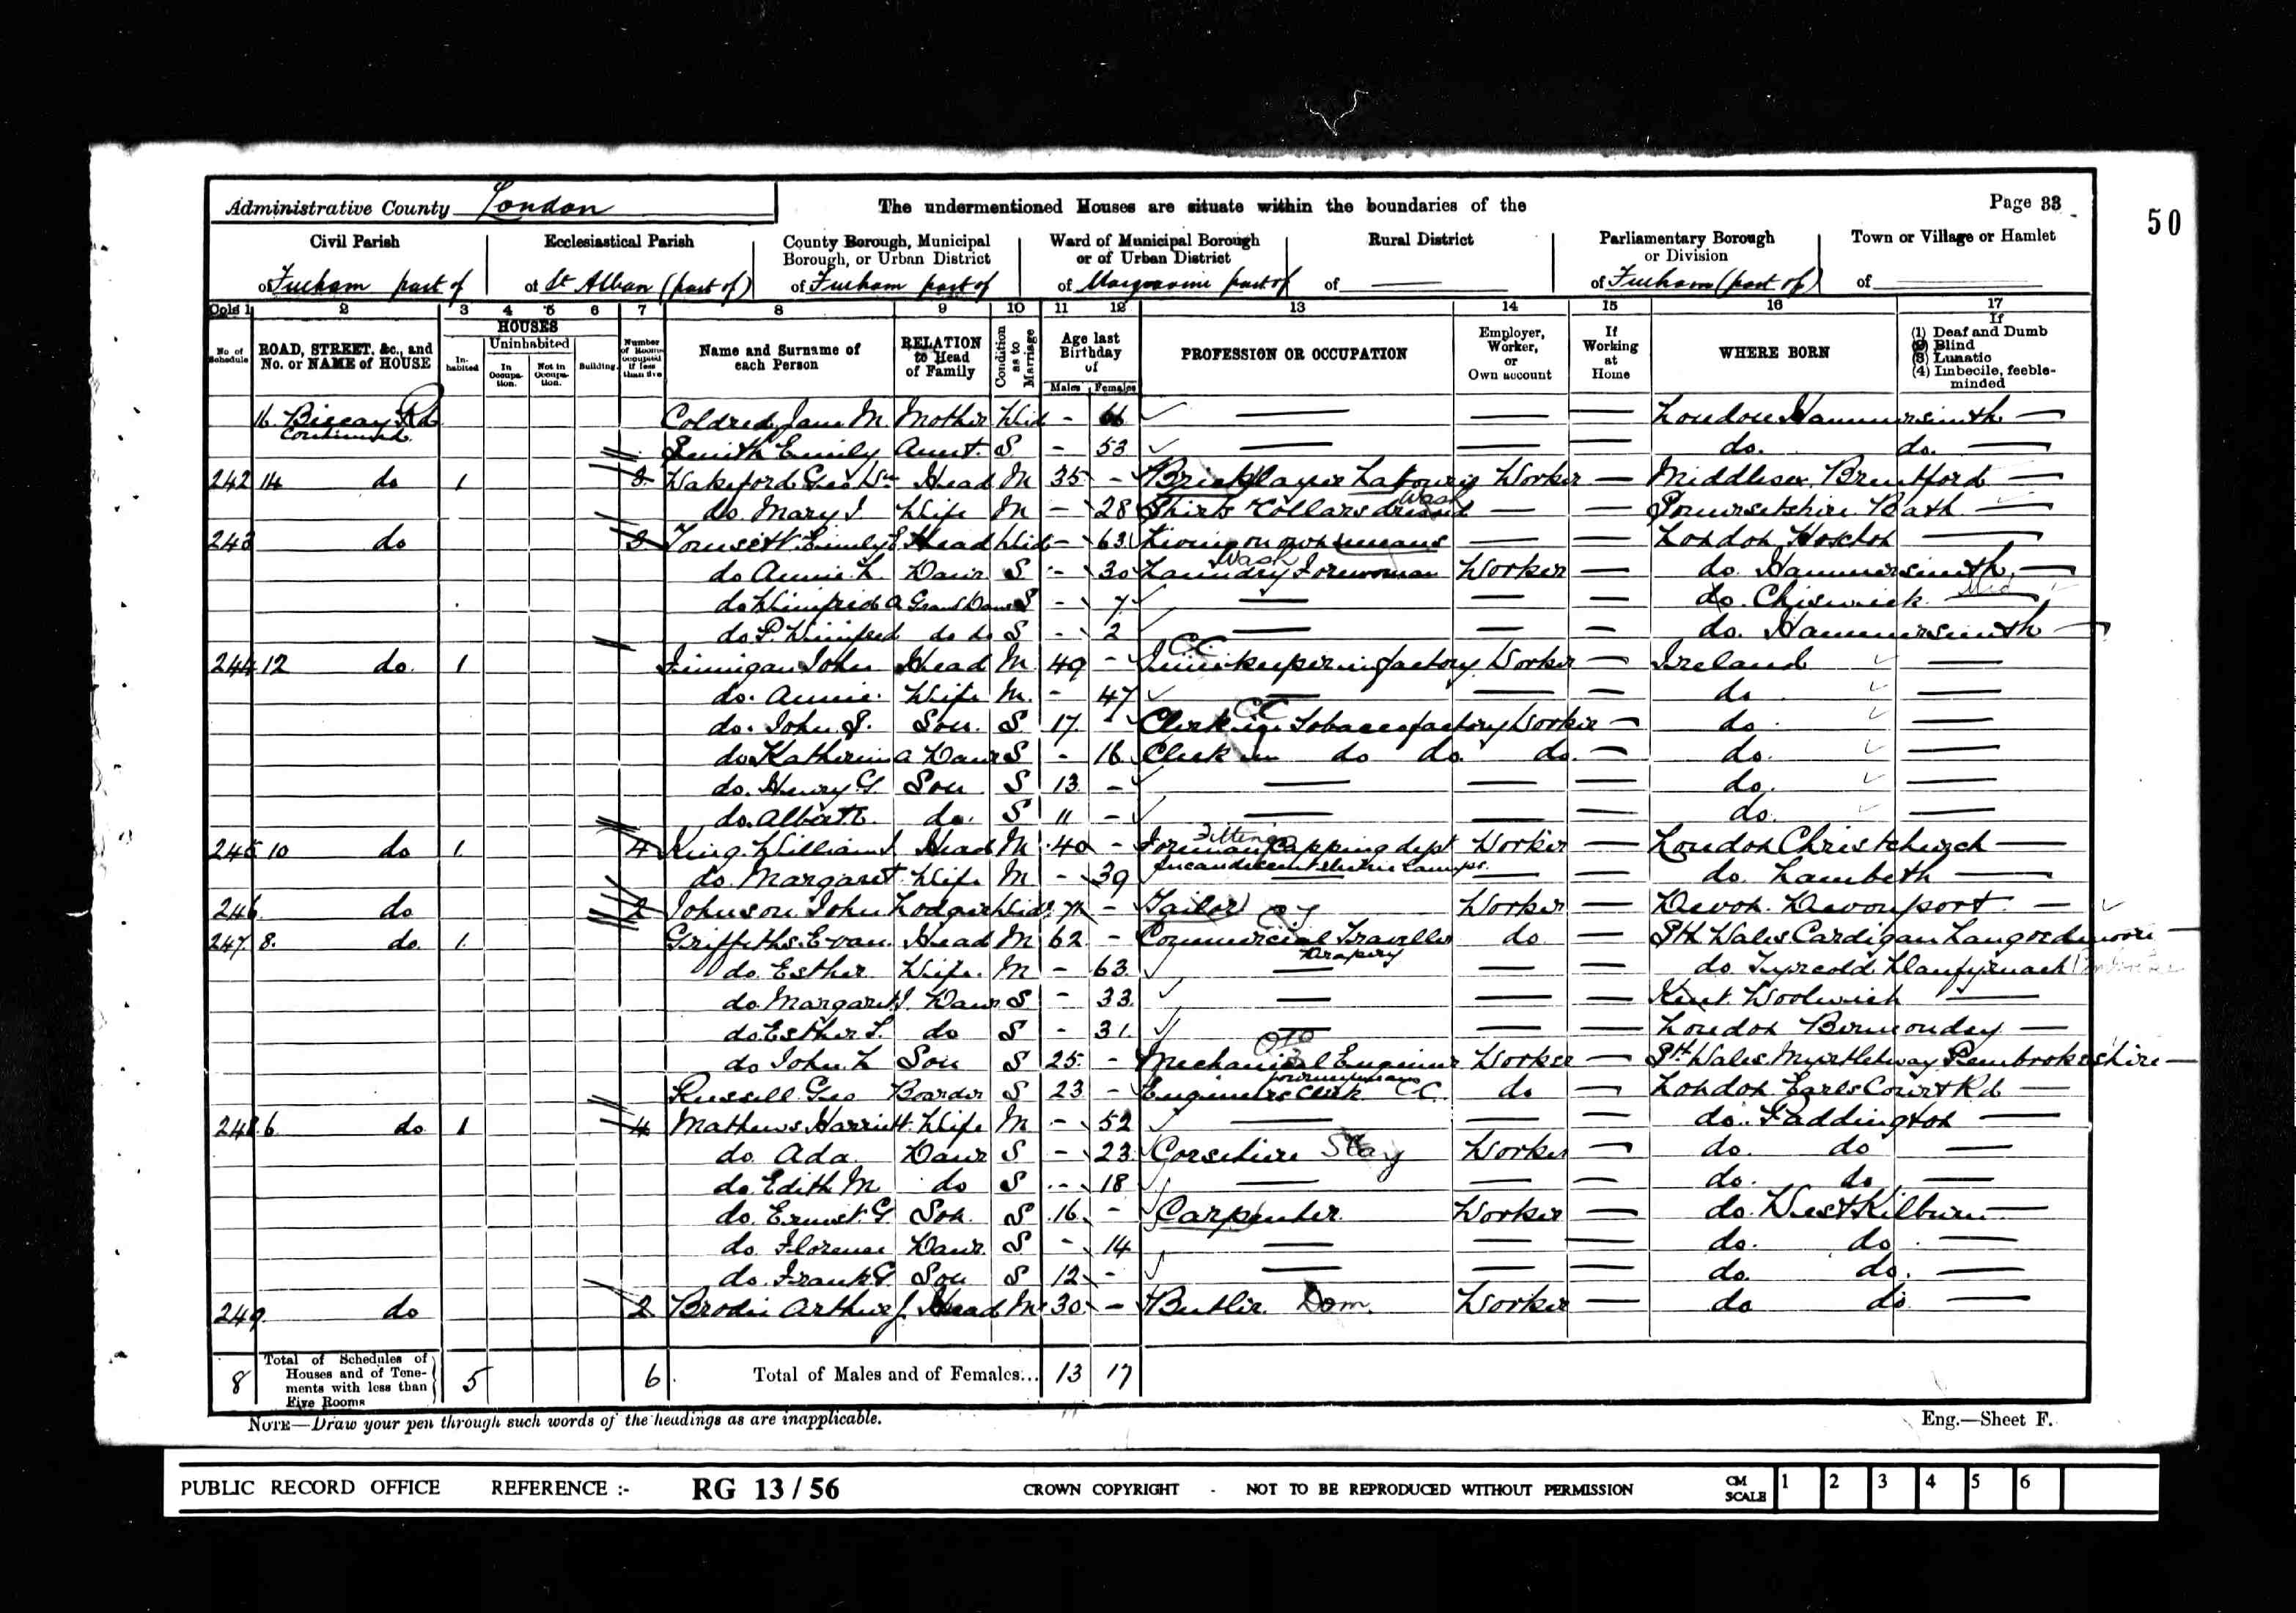 Administrative County London
The undermentioned Houses are situate within the boundaries of the
Page 33
50
Civil Parish
of Fulham part of
Ecclesiastical Parish
of St Alban (part of)
County Borough, Municipal Borough, or Urban District
of Fulham part of
Ward of Municipal Borough or of Urban District
of Margravine part of
Rural District
of
Parliamentary Borough or Division
of Fulham (part of)
Town or Village or Hamlet
of
Cols 1 2 3 4 5 6 7 8 9 10 11 12 13 14 15 16 17
No. of Schedule
ROAD, STREET, &c., and No. or NAME of HOUSE
HOUSES
Inhabited
Uninhabited
In Occupation.
Not in Occupation.
Building.
Number of Rooms occupied if less than five
Name and Surname of each Person
RELATION to Head of Family
Condition as to Marriage
Age last Birthday of
Males Females
PROFESSION OR OCCUPATION
Employer, Worker, or Own account
If Working at Home
WHERE BORN
If
(1) Deaf and Dumb
(2) Blind
(3) Lunatic
(4) Imbecile, feeble-minded
16 Biscay Rd continued Coldred Jane M. Mother Wid - 66 London Hammersmith
Smith Emily Aunt. S - 53 do. do.
242 14 do 1 3 Wakeford Geo Wm Head M 35 - Bricklayer Labourer Worker Middlesex Brentford
do. Mary J. Wife M - 28 Shirts & Collars dresser Wash Somersetshire Bath
243 do 3 Tomsett Emily E Head Wid - 63 Living on own means London Hoxton
do Annie L. Daur S - 30 Laundry Forewoman Wash Worker do. Hammersmith
do Winifred A Grand Daur S - 7 do. Chiswick Mid
do P. Winifred do do S - 2 do. Hammersmith
244 12 do. 1 Finnigan John Head M 49 - Timekeeper in factory C.C. Worker Ireland
do. Annie. Wife M. - 47 do
do. John J. Son. S 17. - Clerk in Tobacco factory C.C. Worker do.
do Katherine A Daur S - 16 Clerk in do do do. do.
do. Henry G Son S 13. - do.
do. Albert E. do. S 11 - do.
245 10 do 1. 4 King. William J. Head M 40 - Foreman Capping dept Fitting Incandescent electric lamps. Worker London Christchurch
do. Margaret Wife M - 39 do. Lambeth
246 do 2 Johnson John Lodger Wid. - Tailor Worker Devon. Devonport
247. 8. do. 1. Griffiths. Evan. Head M 62 - Commercial Traveller Drapery do Sth Wales Cardigan
do. Esther Wife. M - 63. do.
do. Margaret J. Daur S - 33. Kent. Woolwich
do. Esther L. do S - 31. London Bermondsey
do. John L Son S 25. - Mechanical Engineer Worker Sth Wales Pembrokeshire
Russell Geo Boarder S 23 - Engineers Clerk C.C. do London Earls Court Rd
248. 6 do 1 4 Mathews Harriett. Wife M - 52 do. Paddington
do. Ada. Daur S - 23. Corsetiere Stay Worker do. do
do. Edith M do S - 18 do. do
do. Ernest. G. Son. S 16. - Carpenter. Worker do. West Kilburn
do. Florence Daur. S - 14 do. do.
do. Frank G. Son S 12 - do. do.
249. do 2 Brodie Arthur J. Head M 30. - Butler. Dom. Worker do do
8 Total of Schedules of Houses and of Tenements with less than Five Rooms 5 6. Total of Males and of Females... 13 17
NOTE—Draw your pen through such words of the headings as are inapplicable.
Eng.—Sheet F.
PUBLIC RECORD OFFICE REFERENCE :- RG 13 / 56 CROWN COPYRIGHT - NOT TO BE REPRODUCED WITHOUT PERMISSION CM SCALE 1 2 3 4 5 6